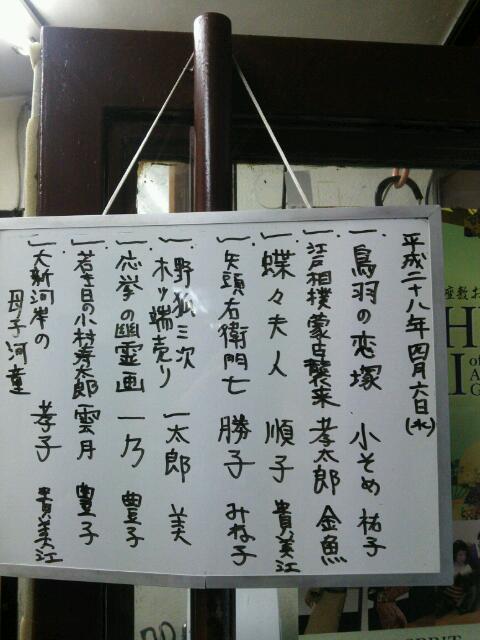 平成二十八年四月六日(水)
一、鳥羽の恋塚 小そめ 祐子
一、江戸相撲蒙古襲来 孝太郎 金魚
一、蝶々夫人 順子 貴美江
一、矢頭右衛門七 勝子 みね子
一、野狐三次 木ッ端売り 一太郎 美
一、応挙の幽霊画 一乃 豊子
一、若き日の小村寿太郎 雲月 豊子
一、大新河岸の
母子河童 孝子 貴美江
座敷お
H
I
of
A
G